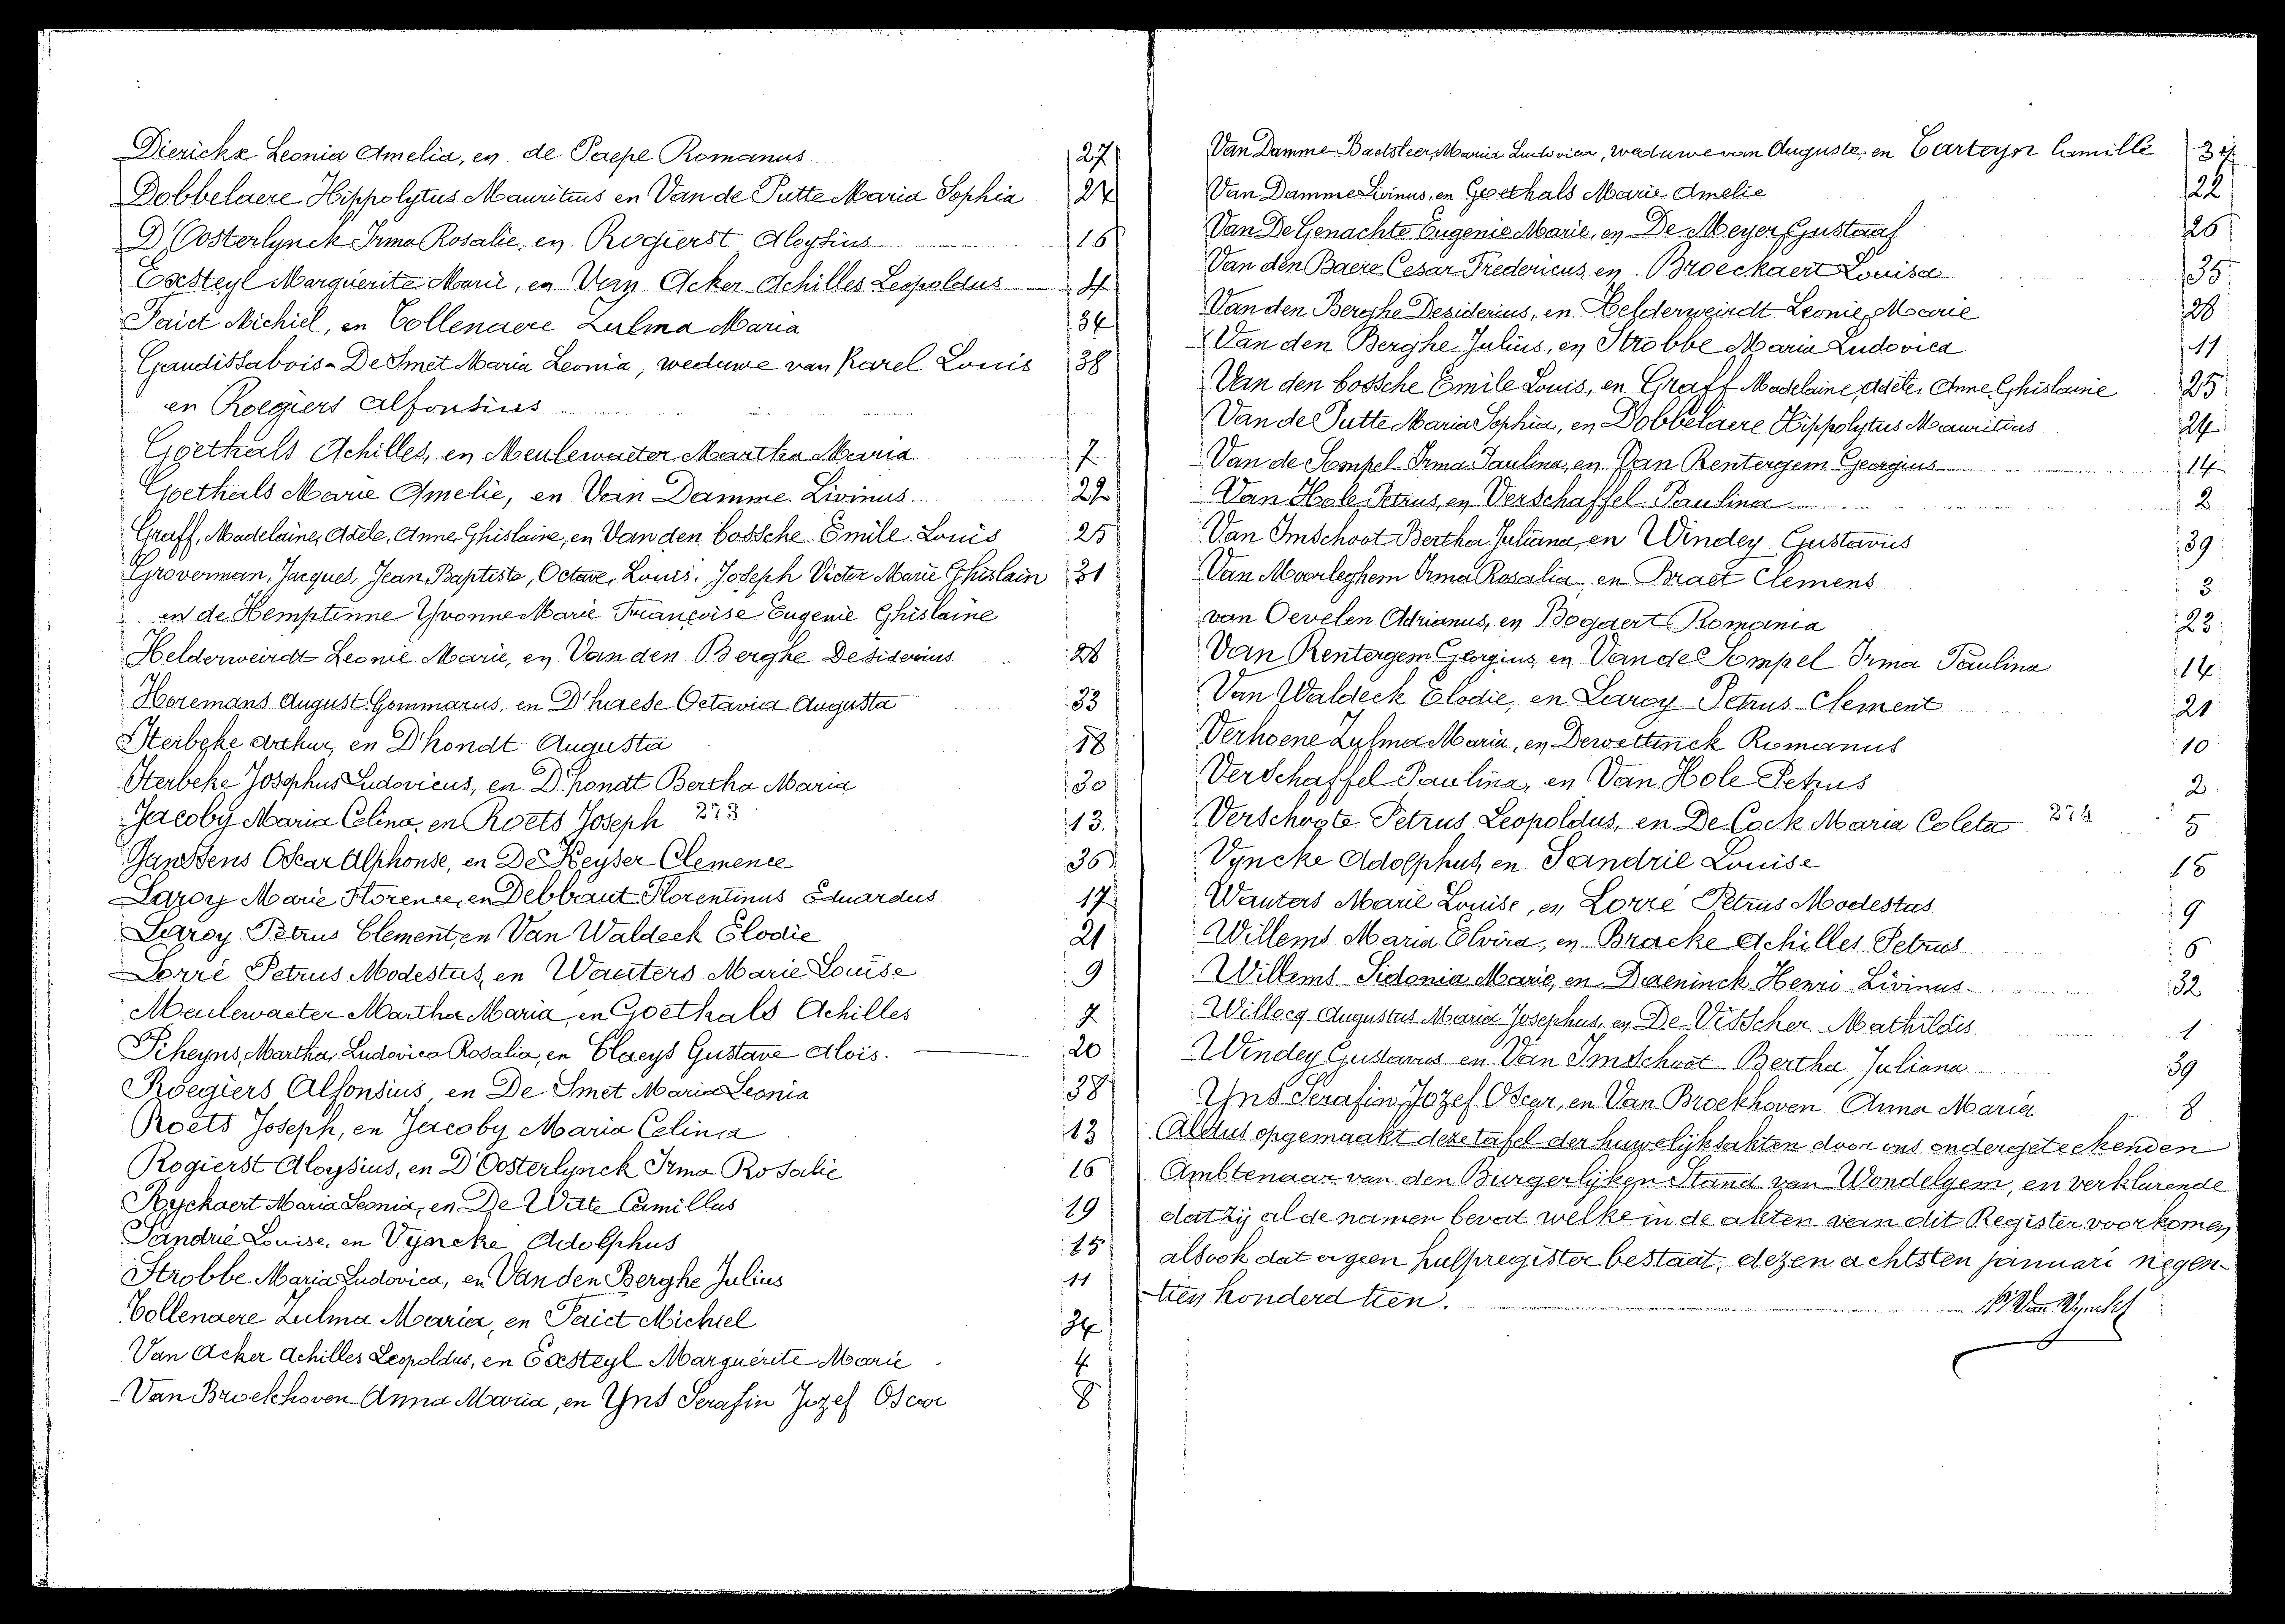 Dierickx Leonia Amelia, en de Paepe Romanus 27
Dobbelaere Hippolytus Mauritius en Van de Putte Maria Sophia 24
D'Oosterlynck Irma Rosalie, en Rogierst Aloysius 16
Eeesteyl Marguérite Marie, en Van Acker Achilles Leopoldus 4
Faict Michiel, en Tollenaere Zulma Maria 34
Gaudissabois-De Smet Maria Leonia, weduwe van Karel Louis 38
en Roegiers Alfonsius
Goethals Achilles, en Meulewaeter Martha Maria 7
Goethals Marie Amelie, en Van Damme Livinus 22
Graff, Madelaine, Adèle, Anne Ghislaine, en Van den bossche Emile Louis 25
Groverman, Jacques, Jean, Baptiste, Octave, Louis, Joseph Victor Marie Ghislain 31
en de Hemptinne Yvonne Marie Françoise Eugenie Ghislaine
Helderweirdt Leonie Marie, en Van den Berghe Desiderius 28
Horemans August Gommarus, en D'haese Octavia Augusta 33
Iterbeke Arthur, en D'hondt Augusta 18
Iterbeke Josephus Ludovicus, en D'hondt Bertha Maria 30
Jacoby Maria Celina, en Roets Joseph 273 13.
Janssens Oscar Alphonse, en De Keyser Clemence 36
Laroy Marie Florence, en Debbaut Florentinus Eduardus 17
Laroy Petrus Clement, en Van Waldeck Elodie 21
Lorré Petrus Modestus, en Wauters Marie Louise 9
Meulewaeter Martha Maria, en Goethals Achilles 7
Piheyns, Martha, Ludovica Rosalia, en Claeys Gustave Alois. 20
Roegiers Alfonsius, en De Smet Maria Leonia 38
Roets Joseph, en Jacoby Maria Celina 13
Rogierst Aloysius, en D'Oosterlynck Irma Rosalie 16
Ryckaert Maria Leonia, en De Witte Camillus 19
Sandrié Louise, en Vyncke Adolphus 15
Strobbe Maria Ludovica, en Van den Berghe Julius 11
Tollenaere Zulma Maria, en Faict Michiel 34
Van Acker Achilles Leopoldus, en Eeesteyl Marguérite Marie 4
Van Broekhoven Anna Maria, en Yns Serafin Jozef Oscar 8
Van Damme-Baetsleer, Maria Ludovica, weduwe van Auguste, en Carteyn Camille
Van Damme Livinus, en Goethals Marie Amelie 22
Van De Genachte Eugenie Marie, en De Meyer, Gustaaf 26
Van den Baere Cesar Fredericus en Broeckaert Louisa 35
Van den Berghe Desiderius, en Helderweirdt Leonie, Marie 28
Van den Berghe Julius, en Strobbe Maria Ludovica 11
Van den bossche Emile Louis, en Graff Madelaine, Adèle, Anne, Ghislaine 25
Van de Putte Maria Sophia, en Dobbelaere Hippolytus Mauritius 24
Van de Sompel Irma Paulina, en Van Rentergem Georgius 14
Van Hole Petrus, en Verschaffel Paulina 2
Van Imschoot Bertha Juliana, en Windey Gustavus 39
Van Moorleghem Irma Rosalia, en Braet Clemens 3
van Oevelen Adrianus, en Bogaert Romania 23
Van Rentergem Georgius, en Van de Sompel Irma Paulina 14
Van Waldeck Elodie, en Laroy Petrus Clement 21
Verhoene Zulma Maria, en Dewettinck Romanus 10
Verschaffel Paulina, en Van Hole Petrus 2
Verschogte Petrus Leopoldus, en De Cock Maria Coleta 274 5
Vyncke Adolphus, en Sandrié Louise 15
Wauters Marie Louise, en Lorré Petrus Modestus 9
Willems Maria Elvira, en Bracke Achilles Petrus 6
Willems Sidonia Marie, en Daeninck Henri Livinus 32
Willocq Augustus Maria Josephus, en De Visscher Mathildis 1
Windey Gustavus en Van Imschoot Bertha Juliana 39
Yns Serafin Jozef Oscar, en Van Broekhoven Anna Maria 8
Aldus opgemaakt deze tafel der huwelijksakten door ons ondergeteekenden
Ambtenaar van den Burgerlijken Stand van Wondelgem, en verklarende
dat zij al de namen bevat welke in de akten van dit Register voorkomen
alsook dat er geen hulpregister bestaat, dezen achtsten januari negen-
tien honderd tien.